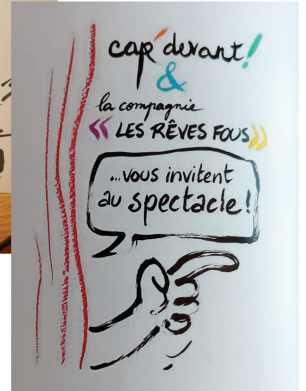 cap'devant!
&
la compagnie
« LES RÊVES FOUS »
...vous invitent
au spectacle!